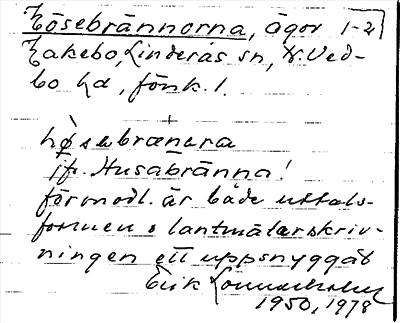 Hösebrännorna, ägor 1-2
Ekebo, Linderås sn, N. Ved-
bo hd, fönk. 1.
høsebrænera
jfr. Husabränna!
förmodl. är både uttals-
formen o lantmäterskriv-
ningen ett uppsnyggat
Erik Lönnerholm
1950, 1978